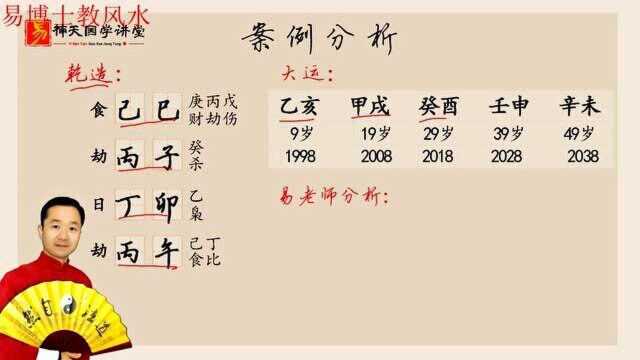 易博士教风水
易
天国学讲堂
案例分析
乾造：
食 己 巳 庚丙戊
财劫伤
劫 丙 子 癸
杀
日 丁 卯 乙
枭
劫 丙 午 己丁
食比
大运：
乙亥 甲戌 癸酉 壬申 辛未
9岁 19岁 29岁 39岁 49岁
1998 2008 2018 2028 2038
易老师分析：
然自法道